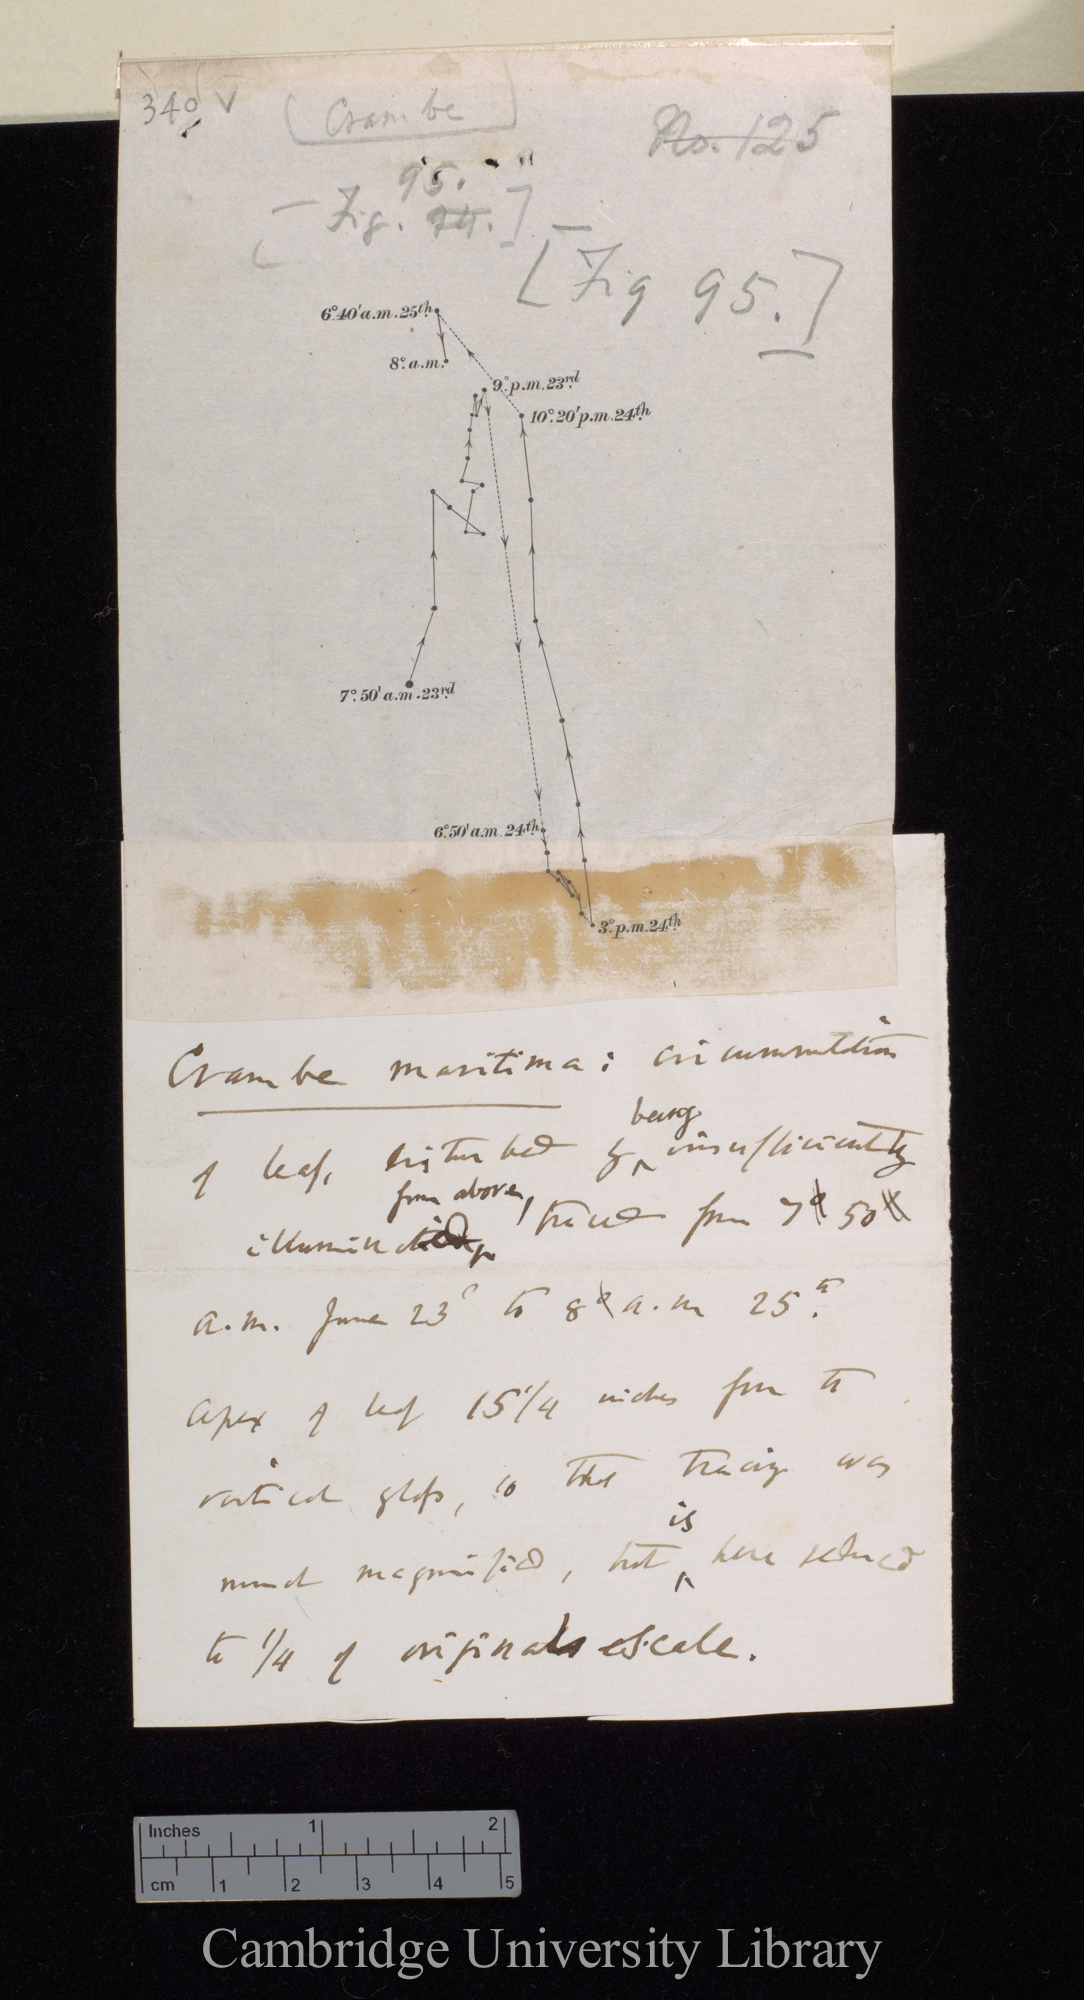 340 v
[Crambe]
No. 125
95.
[Fig. 94.]
[Fig 95.]
6°.40' a.m. 25th
8°. a.m.
9°. p.m. 23rd
10°. 20' p.m. 24th
7°. 50' a.m. 23rd
6°. 50' a.m. 24th
3°. p.m. 24th
Crambe maritima: circumnutation
being
of leaf, disturbed by insufficiently
from above,
illuminated, traced from 7° 50'
a.m. June 23d to 8° a.m 25th.
Apex of leaf 15 1/4 inches from the
vertical glass, so that tracing was
is
much magnified, but here reduced
to 1/4 of original scale.
Inches 1 2
cm 1 2 3 4 5
Cambridge University Library